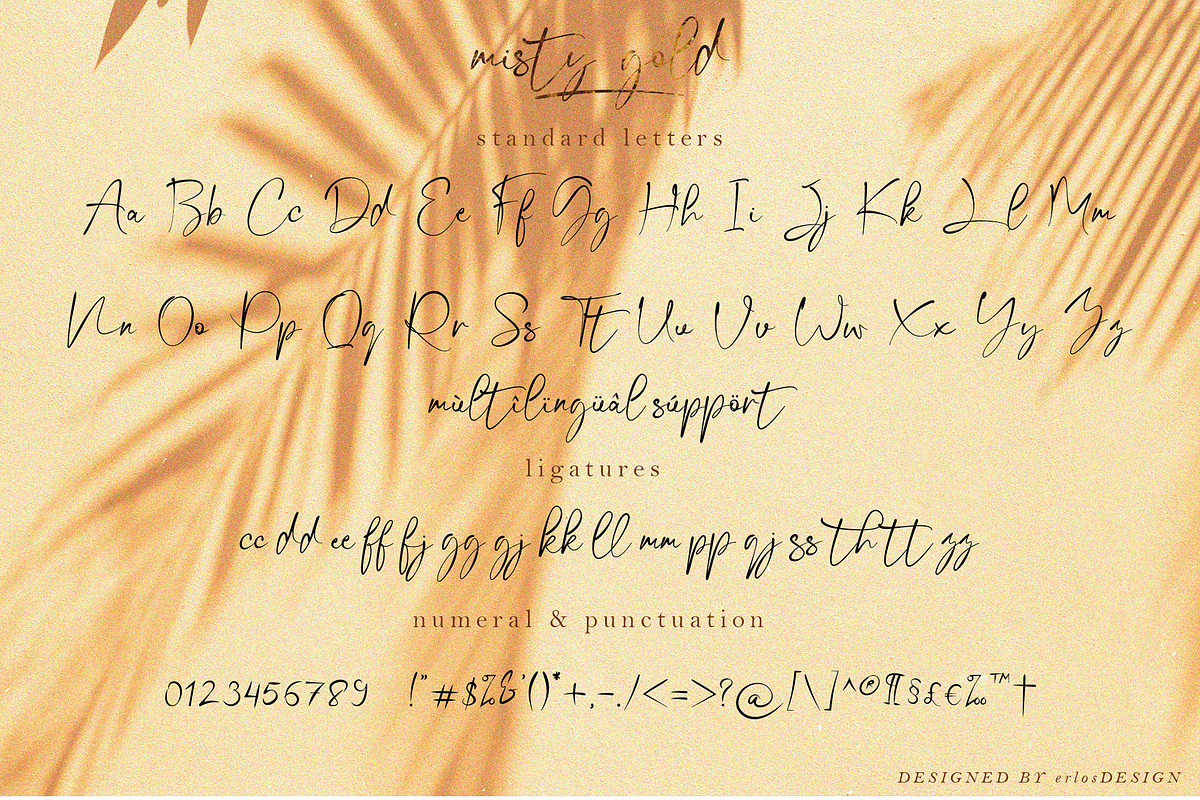 misty gold
standard letters
Aa Bb Cc Dd Ee Ff Gg Hh Ii Jj Kk Ll Mm
Nn Oo Pp Qq Rr Ss Tt Uu Vv Ww Xx Yy Zz
mùltîlïngüâl súppört
ligatures
cc dd ee ff fj gg gj kk ll mm pp qj ss th tt zz
numeral & punctuation
0123456789 !"#$%&'()*+,-./<=>?@[\]^®¶§£€‰™†
DESIGNED BY erlosDESIGN